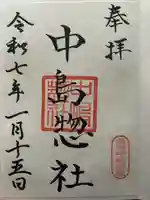 奉拝
中島惣社
令和七年一月十五日